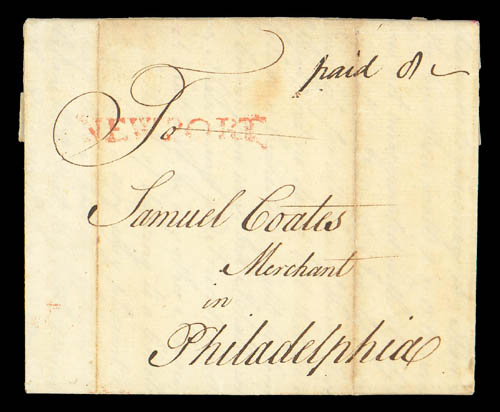 paid 8
To
NEWPORT
Samuel Coates
Merchant
in
Philadelphia